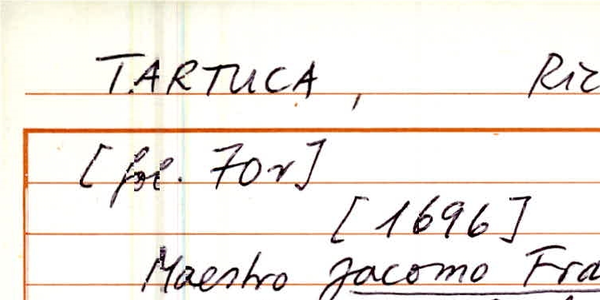 TARTUCA, Ric
[fol. 70r]
[1696]
Maestro Jacomo Fra